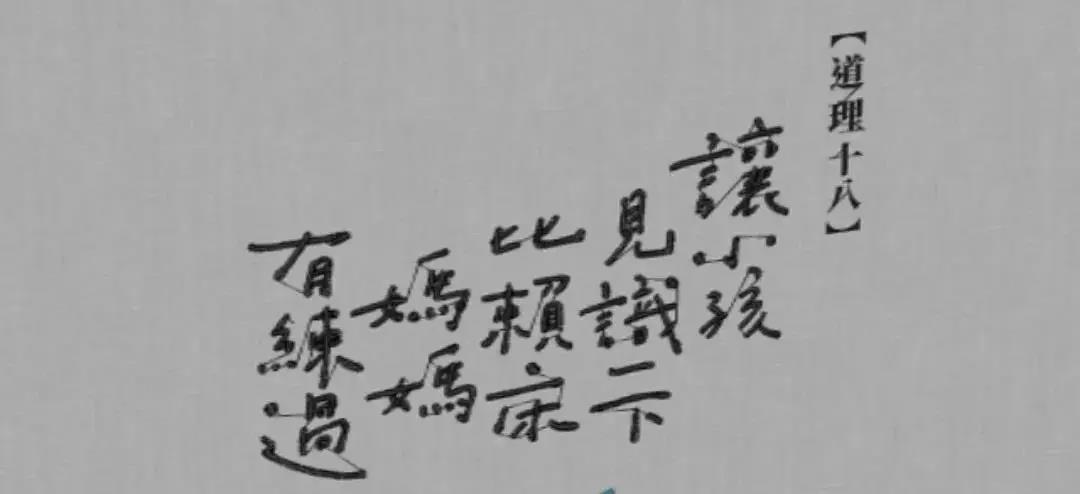 【道理十八】
讓小孩
見識一下
比賴床
媽媽
有練過